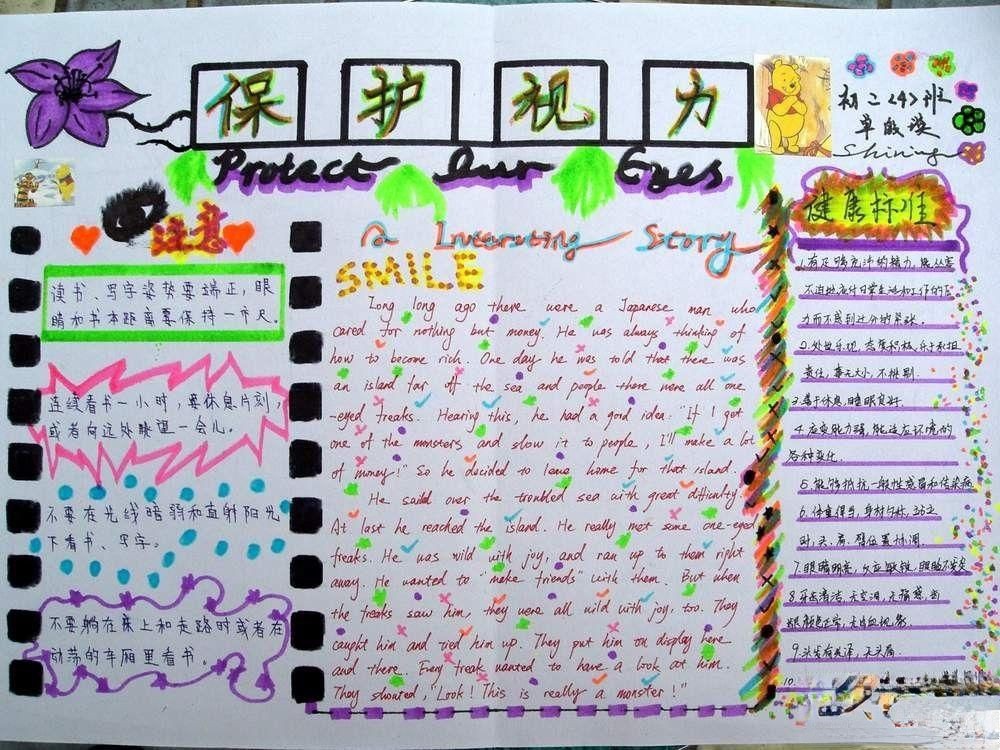 保护视力
Protect Our Eyes
初二〈4〉班
Shining
注意
读书、写字姿势要端正，眼
睛和书本距离要保持一市尺。
连续看书一小时，要休息片刻，
或者向远处眺望一会儿。
不要在光线暗弱和直射阳光
下看书、写字。
不要躺在床上和走路时或者在
动荡的车厢里看书。
A Interesting Story
SMILE
Long long ago there were a Japanese man who
cared for nothing but money. He was always thinking of
how to become rich. One day he was told that there was
an island far off the sea and people there were all one
-eyed freaks. Hearing this, he had a good idea. "If I got
one of the monsters and slow it to people, I'll make a lot
of money!" So he decided to leave home for that island.
He sailed over the troubled sea with great difficulty.
At last he reached the island. He really met some one-eyed
freaks. He was wild with joy, and ran up to them right
away. He wanted to "make friends" with them. But when
the freaks saw him, they were all wild with joy, too. They
caught him and tied him up. They put him on display here
and there. Every freak wanted to have a look at him.
They shouted, "Look! This is really a monster!"
健康标准
1.有足够充沛的精力，能从容
不迫地应付日常生活和工作的压
力而不感到过分的紧张.
2.处世乐观，态度积极，乐于承担
责任，事无大小，不挑剔.
3.善于休息，睡眠良好.
4.应变能力强，能适应环境的
各种变化.
5.能够抵抗一般性感冒和传染病
6.体重得当，身材匀称，站立
时，头、肩、臂位置协调.
7.眼睛明亮，反应敏锐，眼睑不发炎
8.牙齿清洁，无空洞，无痛感，齿
龈颜色正常，无出血现象.
9.头发有光泽，无头屑.
10.